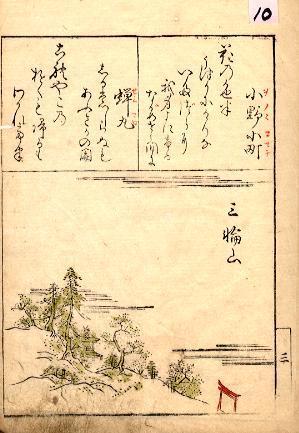 10
小野小町
花乃色は
うつりにけりな
いたつらに
我身よにふる
なかめせし間に
蝉丸
これやこ乃
行くも帰るも
わかれては
しるもしらぬも
あふさかの関
三輪山
三